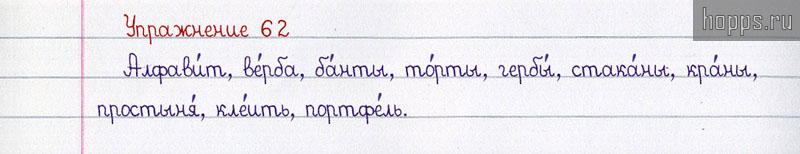 hopps.ru
Упражнение 62
Алфави́т, ве́рба, ба́нты, то́рты, гербы́, стака́ны, кра́ны,
простыня́, кле́ить, портфе́ль.